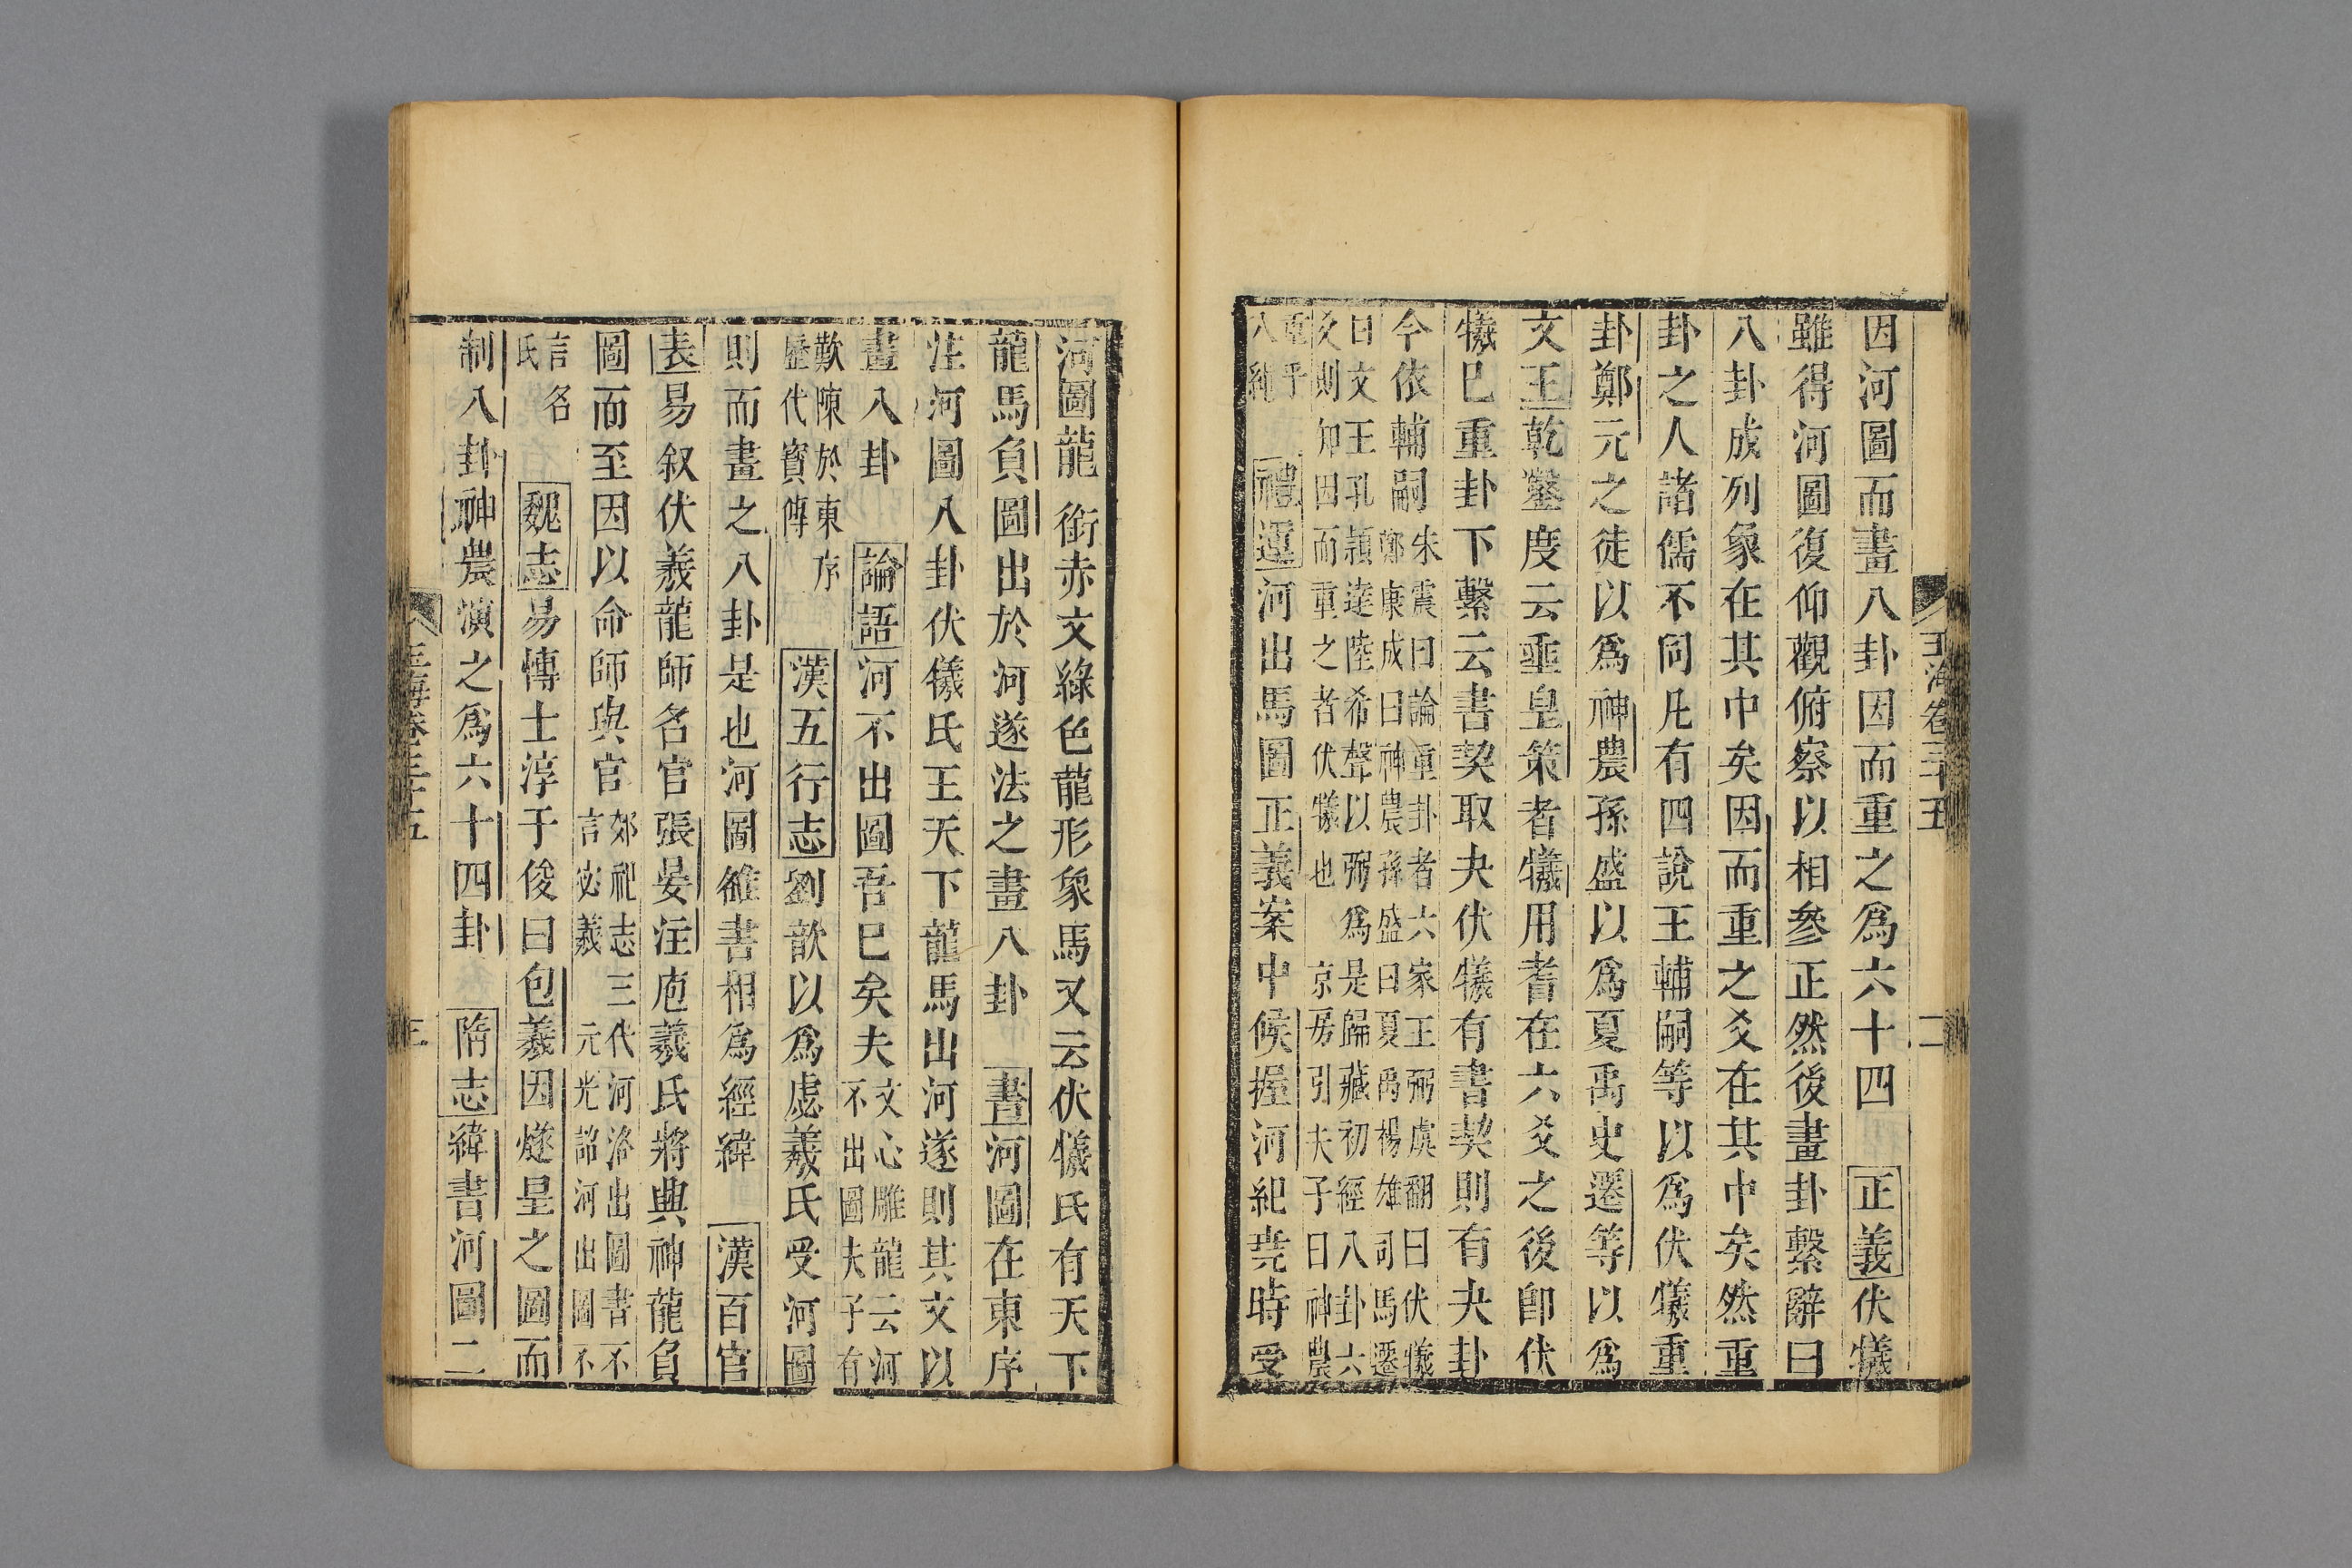 玉海卷三十五 二
因河圖而畫八卦因而重之爲六十四 正義伏犧
雖得河圖復仰觀俯察以相參正然後畫卦繫辭曰
八卦成列象在其中矣因而重之爻在其中矣然重
卦之人諸儒不同凡有四說王輔嗣等以爲伏犧重
卦鄭元之徒以爲神農孫盛以爲夏禹史遷等以爲
文王乾鑿度云垂皇策者犧用蓍在六爻之後卽伏
犧已重卦下繫云書契取夬伏犧有書契則有夬卦
今依輔嗣朱震曰論重卦者六家王弼虞翻曰伏犧
鄭康成曰神農孫盛曰夏禹楊雄司馬遷
曰文王孔穎達陸希聲以弼爲是歸藏初經八卦六
爻則卯因而重之者伏犧也 京房引夫子曰神農
重乎
八純 禮運河出馬圖正義案中候握河紀堯時受
河圖龍銜赤文綠色龍形象馬又云伏犧氏有天下
龍馬負圖出於河遂法之畫八卦 書河圖在東序
注河圖八卦伏犧氏王天下龍馬出河遂則其文以
畫八卦 論語河不出圖吾已矣夫文心雕龍云河
不出圖夫子有
歎陳於東序
歷代寶傳 漢五行志劉歆以爲虙羲氏受河圖
則而畫之八卦是也河圖雒書相爲經緯 漢百官
表易叙伏羲龍師名官張晏注庖羲氏將興神龍負
圖而至因以命師與官郊祀志三代河洛出圖書不
言宓羲 元光詔河出圖不
言名
氏 魏志易博士淳于俊曰包羲因燧皇之圖而
制八卦神農演之爲六十四卦 隋志緯書河圖二
玉海卷三十五 三